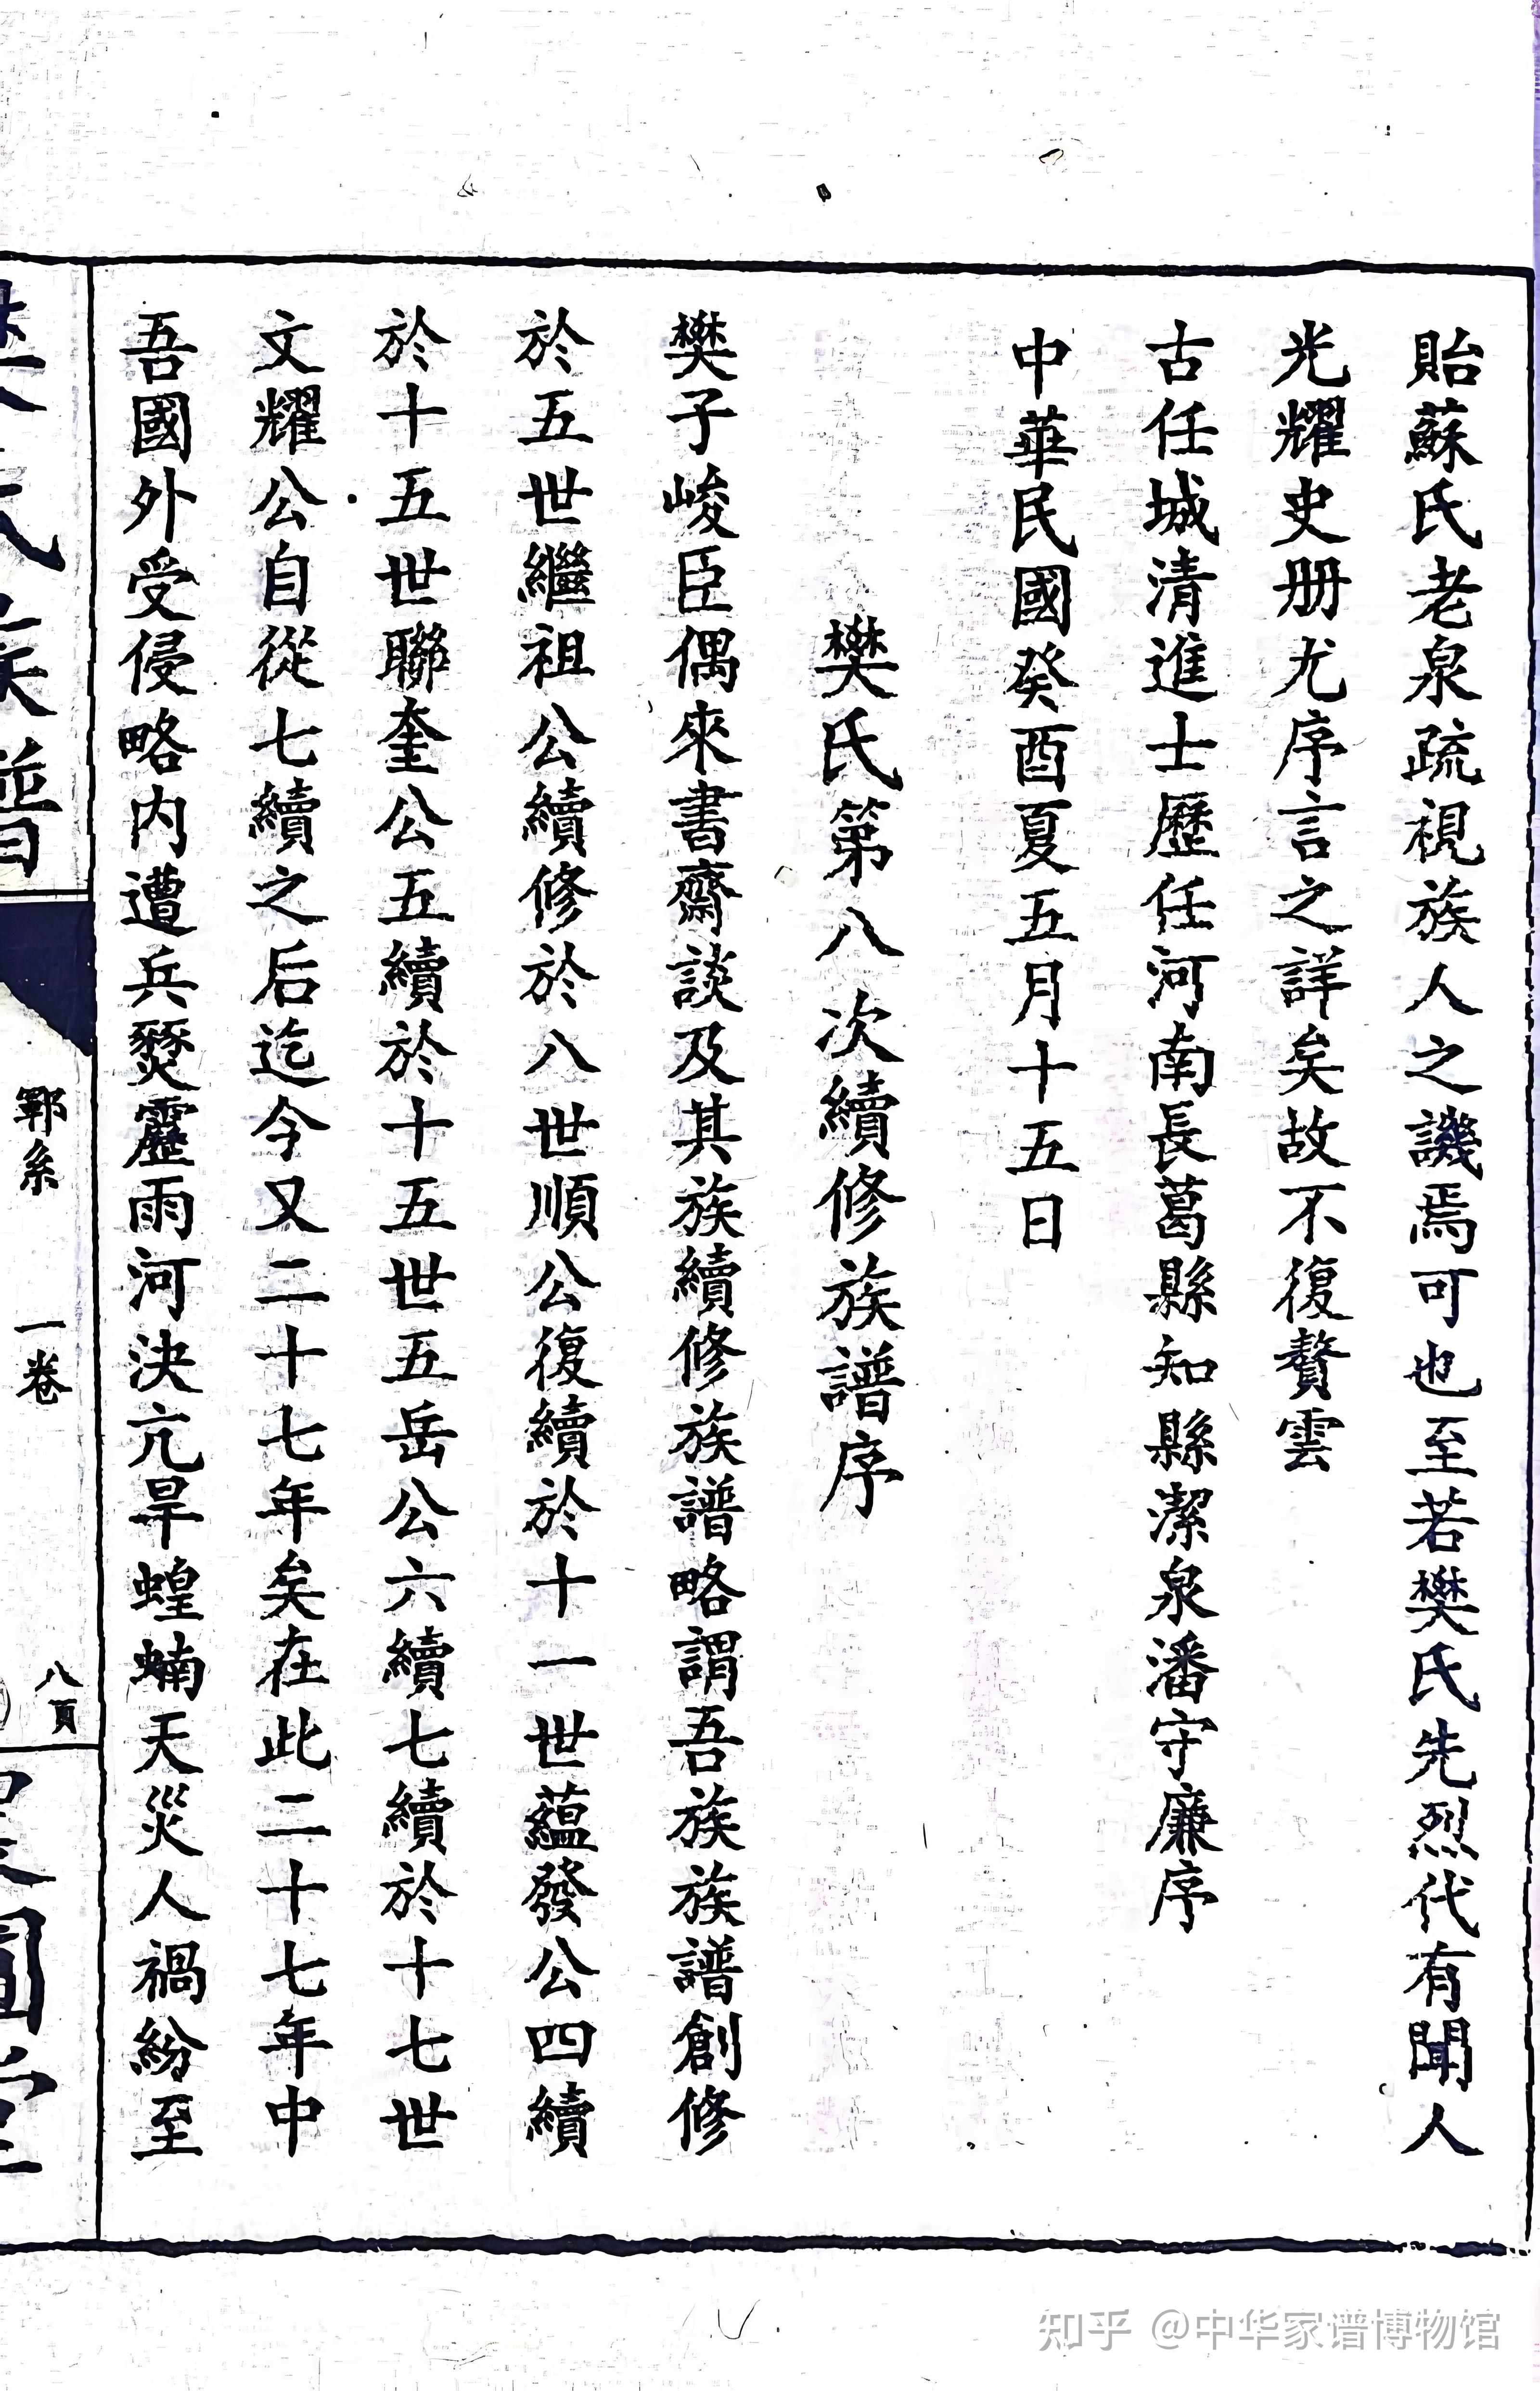 貽蘇氏老泉疏視族人之譏焉可也至若樊氏先烈代有聞人
光耀史册尤序言之詳矣故不復贅雲
古任城清進士歷任河南長葛縣知縣潔泉潘守廉序
中華民國癸酉夏五月十五日
樊氏第八次續修族譜序
樊子峻臣偶來書齋談及其族續修族譜略謂吾族族譜創修
於五世繼祖公續修於八世順公復續於十一世蘊發公四續
於十五世聯奎公五續於十五世五岳公六續七續於十七世
文耀公自從七續之后迄今又二十七年矣在此二十七年中
吾國外受侵略内遭兵燹靂雨河決亢旱蝗蝻天災人禍紛至
鄆系
一卷
八頁
知乎 @中华家谱博物馆